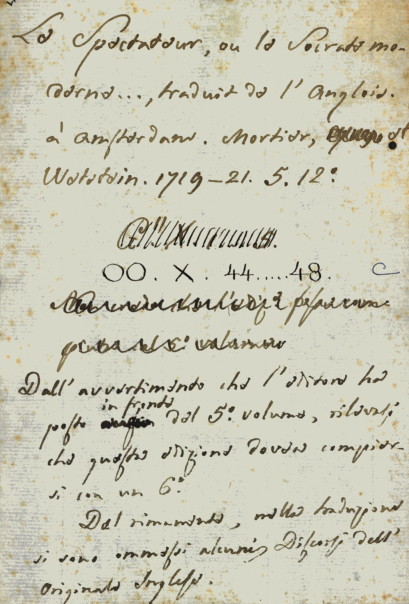 Le Spectateur, ou le Socrate mo-
derne..., traduit de l'Anglois.
à Amsterdam. Mortier, et
Wetstein. 1719–21. 5. 12°
OO. X. 44.....48.
Dall'avvertimento che l'editore ha
posto in fronte del 5° volume, rilevasi
che questa edizione dovea compier-
si con un 6°
Del rimanente, nella traduzione
si sono ommessi alcuni Discorsi dell'
Originale Inglese.